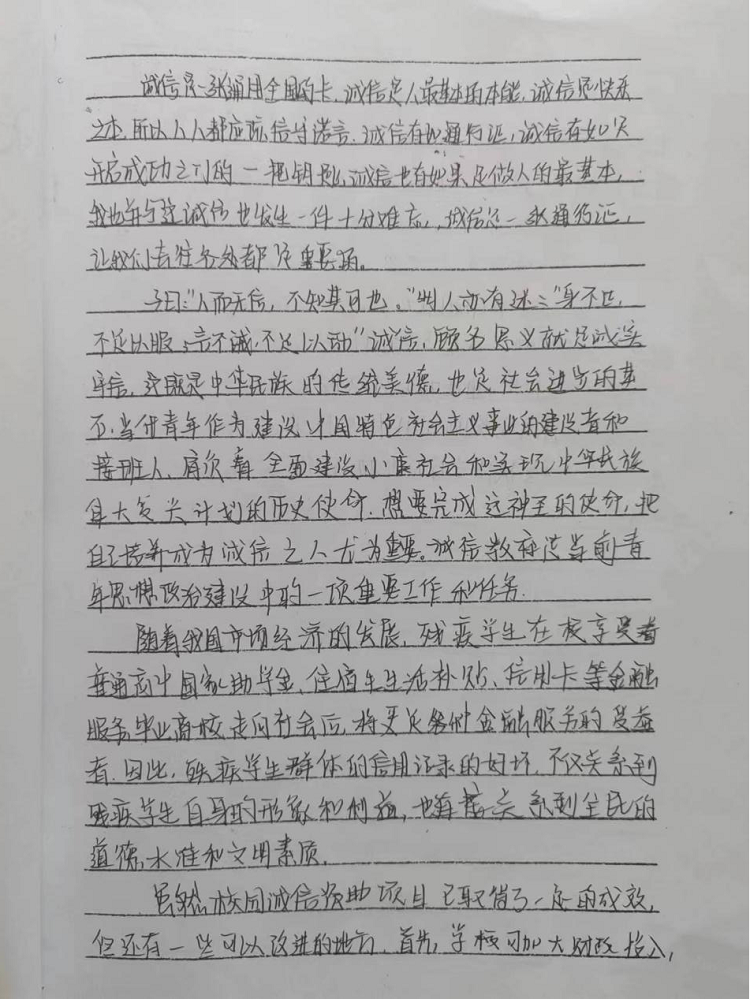 诚信是一张通用全国的卡，诚信是人最基本的本能，诚信是快乐
之本，所以人人都应诚信守诺言。诚信有如通行证，诚信有如是
开启成功之门的一把钥匙，诚信也有如果是做人的最基本，
我也许与这诚信也发生一件十分难忘，诚信是一张通行证，
让我们去往各处都是重要的。
子曰："人而无信，不知其可也。" 有述："身不正，
不足以服；言不诚，不足以动"诚信，顾名思义就是诚实
守信，它既是中华民族的传统美德，也是社会进步的基
石。当代青年作为建设中国特色社会主义事业的建设者和
接班人，肩负着全面建设小康社会和实现中华民族
伟大复兴计划的历史使命。想要完成这神圣的使命，把
自己培养成为诚信之人尤为重要。诚信教育是当前青
年思想政治建设中的一项重要工作和任务。
随着我国市场经济的发展，残疾学生在校享受着
普通高中国家助学金、住宿生生活补贴、信用卡等金融
服务毕业离校走向社会后，将更是各种金融服务的受益
者。因此，残疾学生群体的信用记录的好坏，不仅关系到
残疾学生自身的形象和利益，也直接关系到全民的
道德水准和文明素质。
虽然校园诚信资助项目已取得了一定的成效，
但还有一些可以改进的地方。首先，学校可加大财政投入，